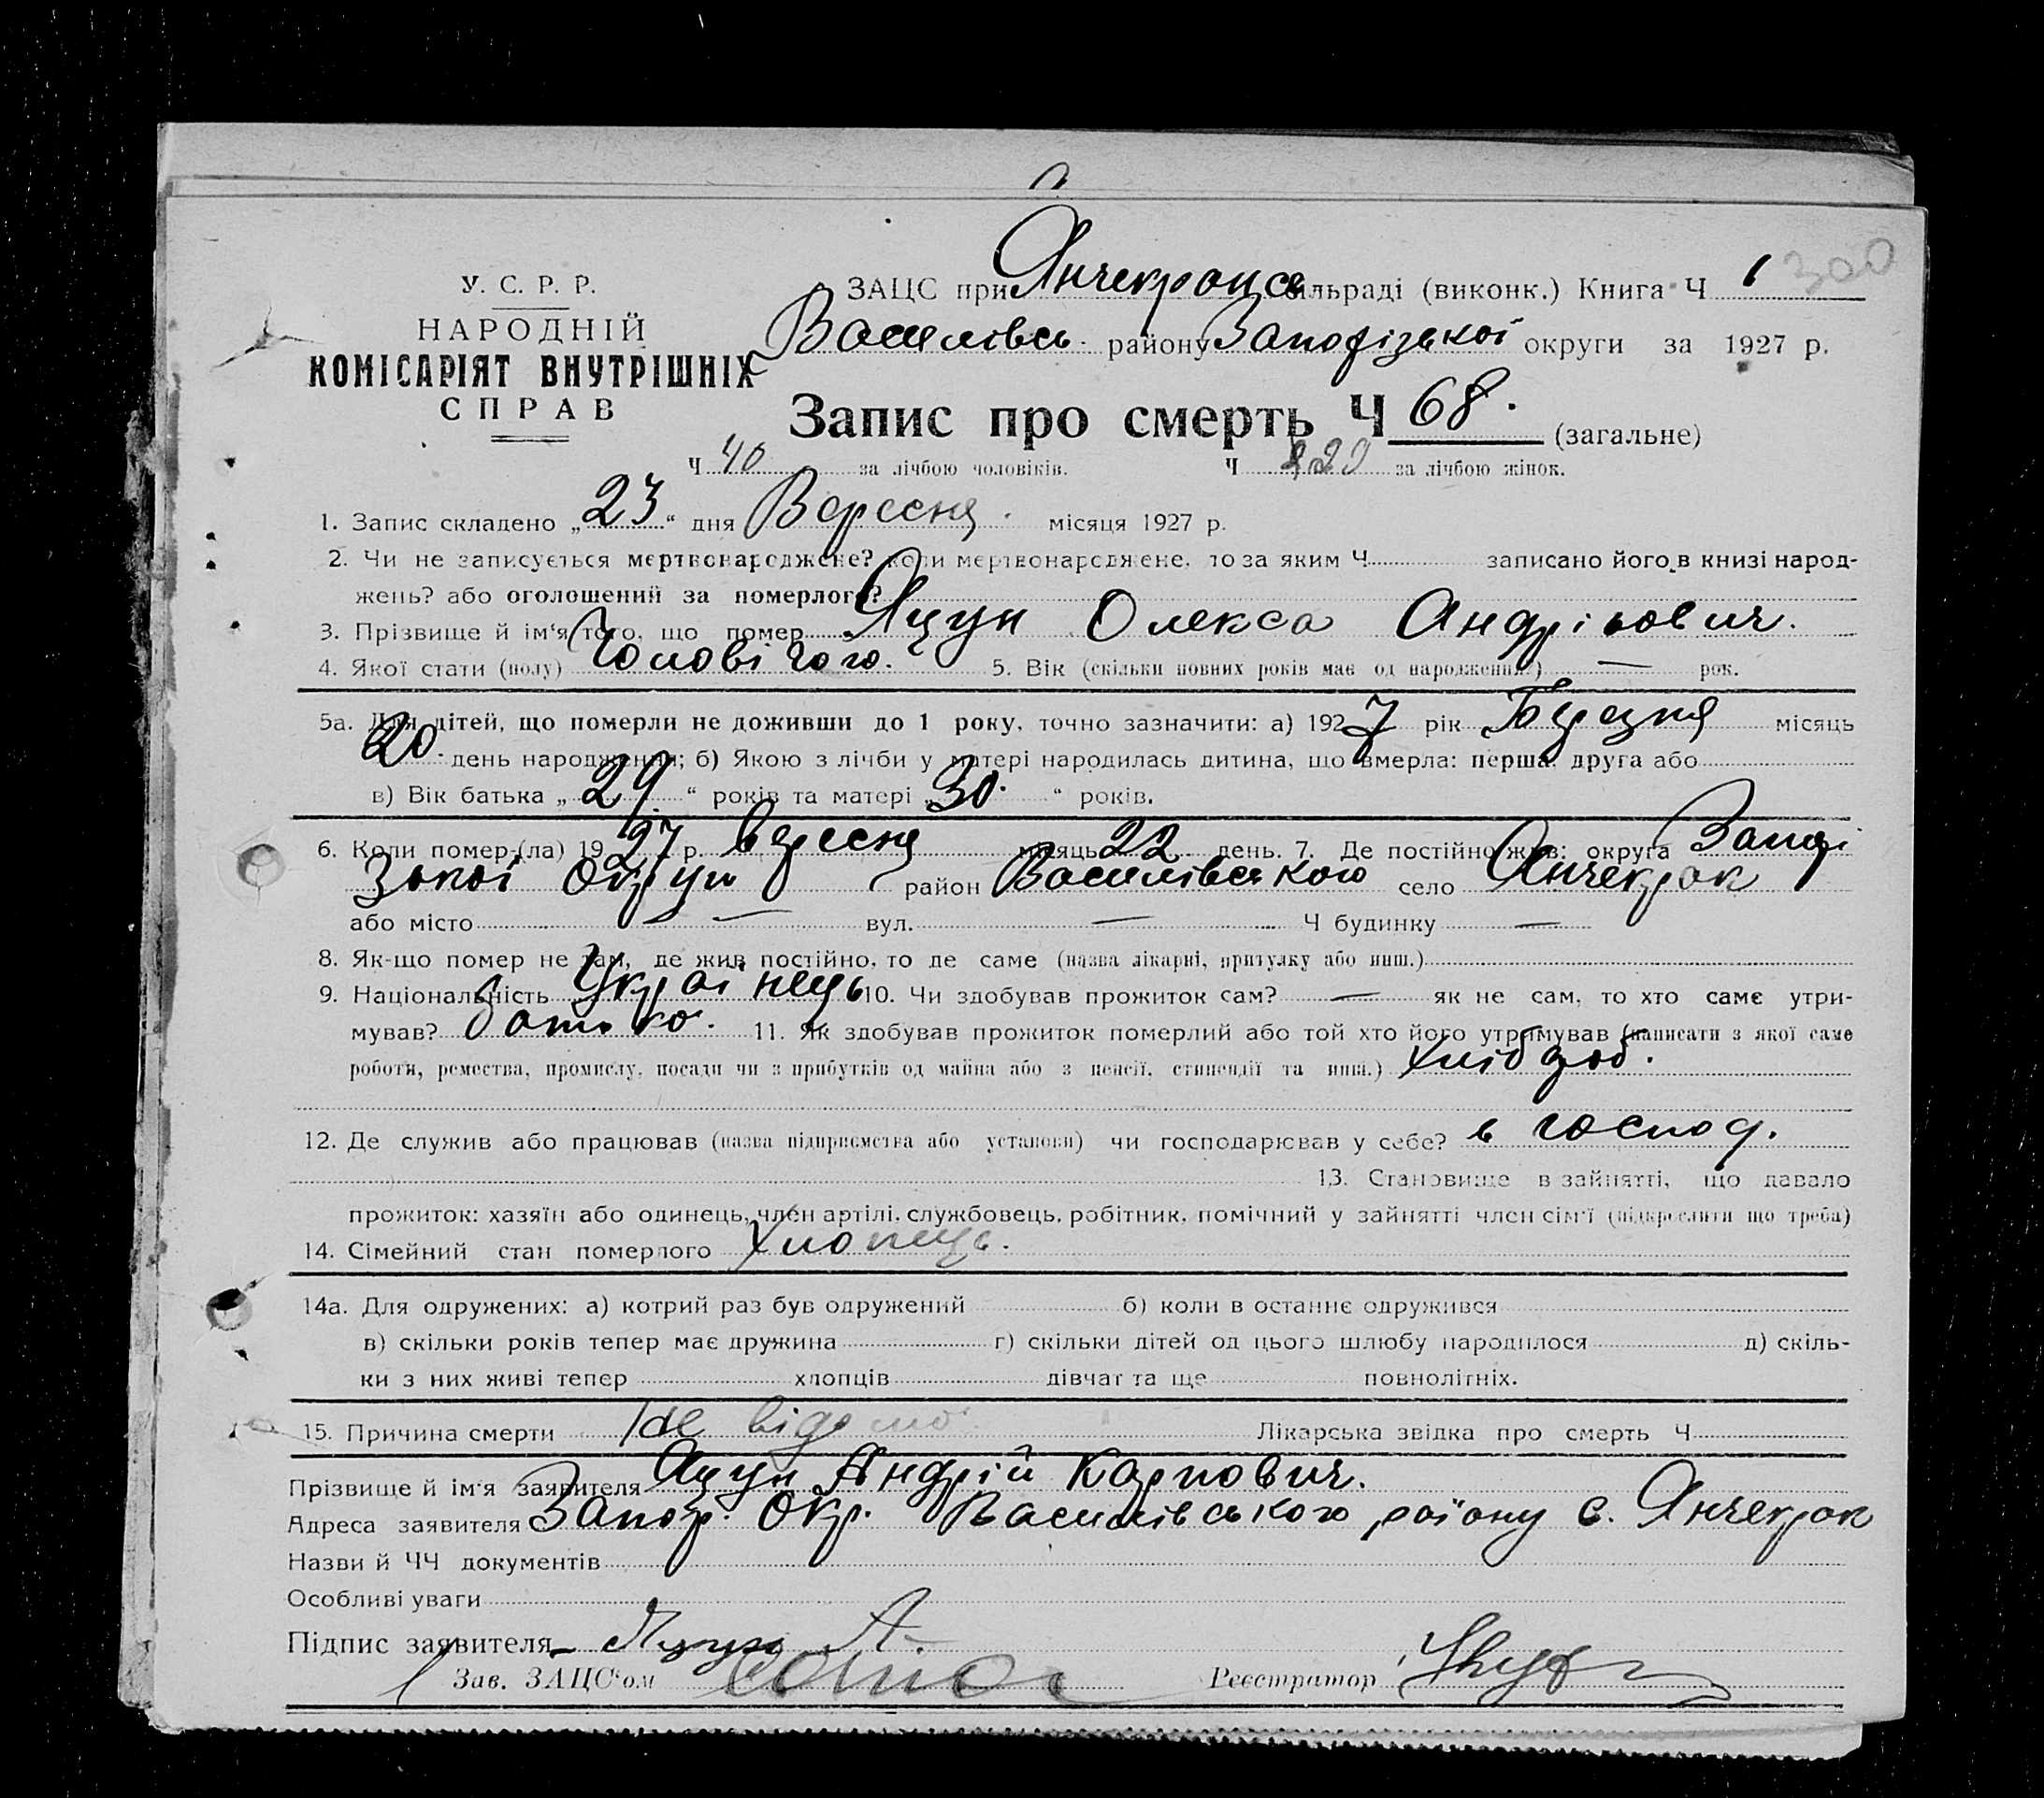 300
У. С. Р. Р.
НАРОДНІЙ
КОМІСАРІЯТ ВНУТРІШНІХ
СПРАВ
ЗАЦС при Янчекрацсильраді (виконк.) Книга Ч 1
Василівсь. району Запорізької округи за 1927 р.
Запис про смерть Ч 68. (загальне)
Ч 40 за лічбою чоловіків. Ч за лічбою жінок.
1. Запис складено „23“ дня Вересня. місяця 1927 р.
2. Чи не записується мертвонароджене? коли мертвонароджене, то за яким Ч записано його в книзі народ-
жень? або оголошений за померлого?
3. Прізвище й ім'я того, що помер Яцун Олекса Андрійович.
4. Якої стати (полу) Чоловічого. 5. Вік (скільки повних років має од народження?) — рок.
5а. Для дітей, що померли не доживши до 1 року, точно зазначити: а) 1927 рік Березня місяць
20. день народження; б) Якою з лічби у матері народилась дитина, що вмерла: перша, друга або
в) Вік батька „29.“ років та матері „30.“ років.
6. Коли помер-(ла) 1927 р. вересня місяць 22 день. 7. Де постійно жив: округа Запорі
зької Округи район Василівського село Янчекрак
або місто — вул. — Ч будинку —
8. Як-що помер не там, де жив постійно, то де саме (назва лікарні, притулку або инш.)
9. Національність Українець 10. Чи здобував прожиток сам? — як не сам, то хто саме утри-
мував? батько. 11. Як здобував прожиток померлий або той хто його утримував (написати з якої саме
роботи, ремества, промислу, посади чи з прибутків од майна або з пенсії, стипендії та инш.) хлібороб.
12. Де служив або працював (назва підприємства або установи) чи господарював у себе? в господ.
13. Становище в зайнятті, що давало
прожиток: хазяїн або одинець, член артілі, службовець, робітник, помічний у зайнятті член сім'ї (підкреслити що треба)
14. Сімейний стан померлого Хлопець.
14а. Для одружених: а) котрий раз був одружений б) коли в останнє одружився
в) скільки років тепер має дружина г) скільки дітей од цього шлюбу народилося д) скіль-
ки з них живі тепер хлопців дівчат та ще повнолітніх.
15. Причина смерти Не відомо. Лікарська звідка про смерть Ч
Прізвище й ім'я заявителя Яцун Андрій Карпович.
Адреса заявителя Запор. Окр. Василівського району с. Янчекрак
Назви й ЧЧ документів
Особливі уваги
Підпис заявителя Яцун А.
Зав. ЗАЦС'ом Реєстратор